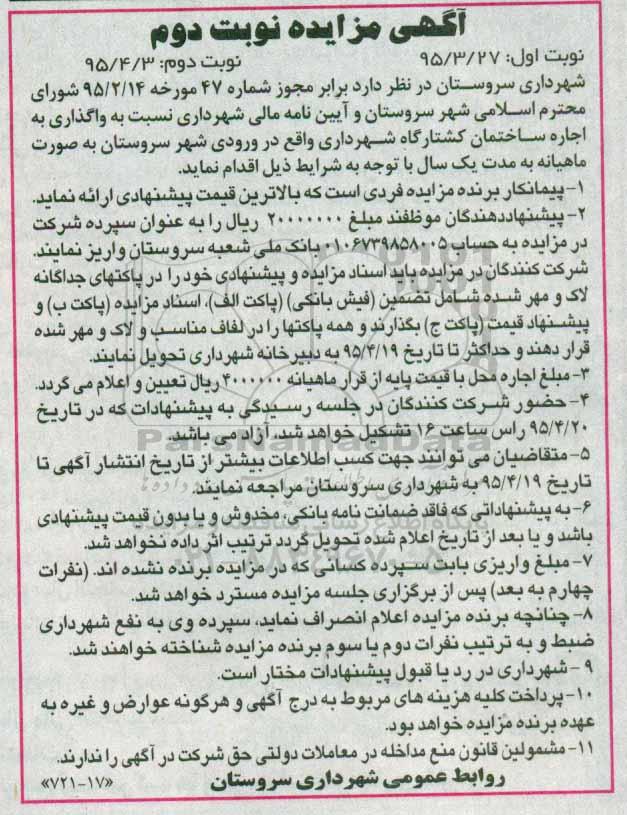 آگهی مزایده نوبت دوم
نوبت اول: ۹۵/۳/۲۷ نوبت دوم: ۹۵/۴/۳
شهرداری سروستان در نظر دارد برابر مجوز شماره ۴۷ مورخه ۹۵/۲/۱۴ شورای
محترم اسلامی شهر سروستان و آیین نامه مالی شهرداری نسبت به واگذاری به
اجاره ساختمان کشتارگاه شهرداری واقع در ورودی شهر سروستان به صورت
ماهیانه به مدت یک سال با توجه به شرایط ذیل اقدام نماید.
۱- پیمانکار برنده مزایده فردی است که بالاترین قیمت پیشنهادی ارائه نماید.
۲- پیشنهاددهندگان موظفند مبلغ ۲۰۰۰۰۰۰۰ ریال را به عنوان سپرده شرکت
در مزایده به حساب ۰۱۰۶۷۳۹۸۵۸۰۰۵ بانک ملی شعبه سروستان واریز نمایند.
شرکت کنندگان در مزایده باید اسناد مزایده و پیشنهادی خود را در پاکتهای جداگانه
لاک و مهر شده شامل تضمین (فیش بانکی) (پاکت الف)، اسناد مزایده (پاکت ب) و
پیشنهاد قیمت (پاکت ج) بگذارند و همه پاکتها را در لفاف مناسب و لاک و مهر شده
قرار دهند و حداکثر تا تاریخ ۹۵/۴/۱۹ به دبیرخانه شهرداری تحویل نمایند.
۳- مبلغ اجاره محل با قیمت پایه از قرار ماهیانه ۴۰۰۰۰۰۰ ریال تعیین و اعلام می گردد.
۴- حضور شرکت کنندگان در جلسه رسیدگی به پیشنهادات که در تاریخ
۹۵/۴/۲۰ راس ساعت ۱۶ تشکیل خواهد شد، آزاد می باشد.
۵- متقاضیان می توانند جهت کسب اطلاعات بیشتر از تاریخ انتشار آگهی تا
تاریخ ۹۵/۴/۱۹ به شهرداری سروستان مراجعه نمایند.
۶- به پیشنهاداتی که فاقد ضمانت نامه بانکی، مخدوش و یا بدون قیمت پیشنهادی
باشد و یا بعد از تاریخ اعلام شده تحویل گردد ترتیب اثر داده نخواهد شد.
۷- مبلغ واریزی بابت سپرده کسانی که در مزایده برنده نشده اند. (نفرات
چهارم به بعد) پس از برگزاری جلسه مزایده مسترد خواهد شد.
۸- چنانچه برنده مزایده اعلام انصراف نماید، سپرده وی به نفع شهرداری
ضبط و به ترتیب نفرات دوم یا سوم برنده مزایده شناخته خواهند شد.
۹- شهرداری در رد یا قبول پیشنهادات مختار است.
۱۰- پرداخت کلیه هزینه های مربوط به درج آگهی و هرگونه عوارض و غیره به
عهده برنده مزایده خواهد بود.
۱۱- مشمولین قانون منع مداخله در معاملات دولتی حق شرکت در آگهی را ندارند.
روابط عمومی شهرداری سروستان «۷۲۱-۱۷»
ParsNamadData